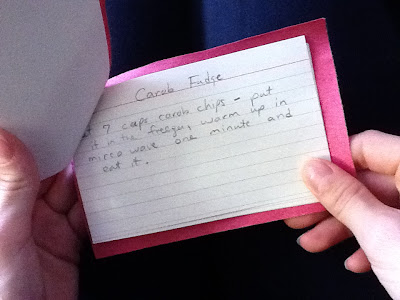 Carob Fudge
7 cups carob chips - put
it in the freezer, warm up in
mirco wave one minute and
eat it.